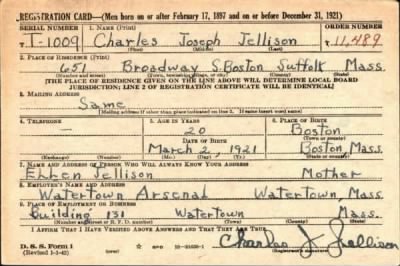 REGISTRATION CARD—(Men born on or after February 17, 1897 and on or before December 31, 1921)
SERIAL NUMBER 1. NAME (Print) ORDER NUMBER
T-1009 Charles Joseph Jellison 11,489
(First) (Middle) (Last)
2. PLACE OF RESIDENCE (Print)
651 Broadway S. Boston Suffolk Mass
(Number and street) (Town, township, village, or city) (County) (State)
[THE PLACE OF RESIDENCE GIVEN ON THE LINE ABOVE WILL DETERMINE LOCAL BOARD
JURISDICTION; LINE 2 OF REGISTRATION CERTIFICATE WILL BE IDENTICAL]
3. MAILING ADDRESS
Same
[Mailing address if other than place indicated on line 2. If same insert word same]
4. TELEPHONE 5. AGE IN YEARS 6. PLACE OF BIRTH
— 20 Boston
DATE OF BIRTH (Town or county)
March 2, 1921 Boston, Mass.
(Exchange) (Number) (Mo.) (Day) (Yr.) (State or country)
7. NAME AND ADDRESS OF PERSON WHO WILL ALWAYS KNOW YOUR ADDRESS
Ellen Jellison Mother
8. EMPLOYER'S NAME AND ADDRESS
Watertown Arsenal Watertown, Mass
9. PLACE OF EMPLOYMENT OR BUSINESS
Building 131 Watertown Mass.
(Number and street or R. F. D. number) (Town) (County) (State)
I AFFIRM THAT I HAVE VERIFIED ABOVE ANSWERS AND THAT THEY ARE TRUE.
D. S. S. Form 1
(Revised 1-1-42)
Charles J. Jellison
(Registrant's signature)